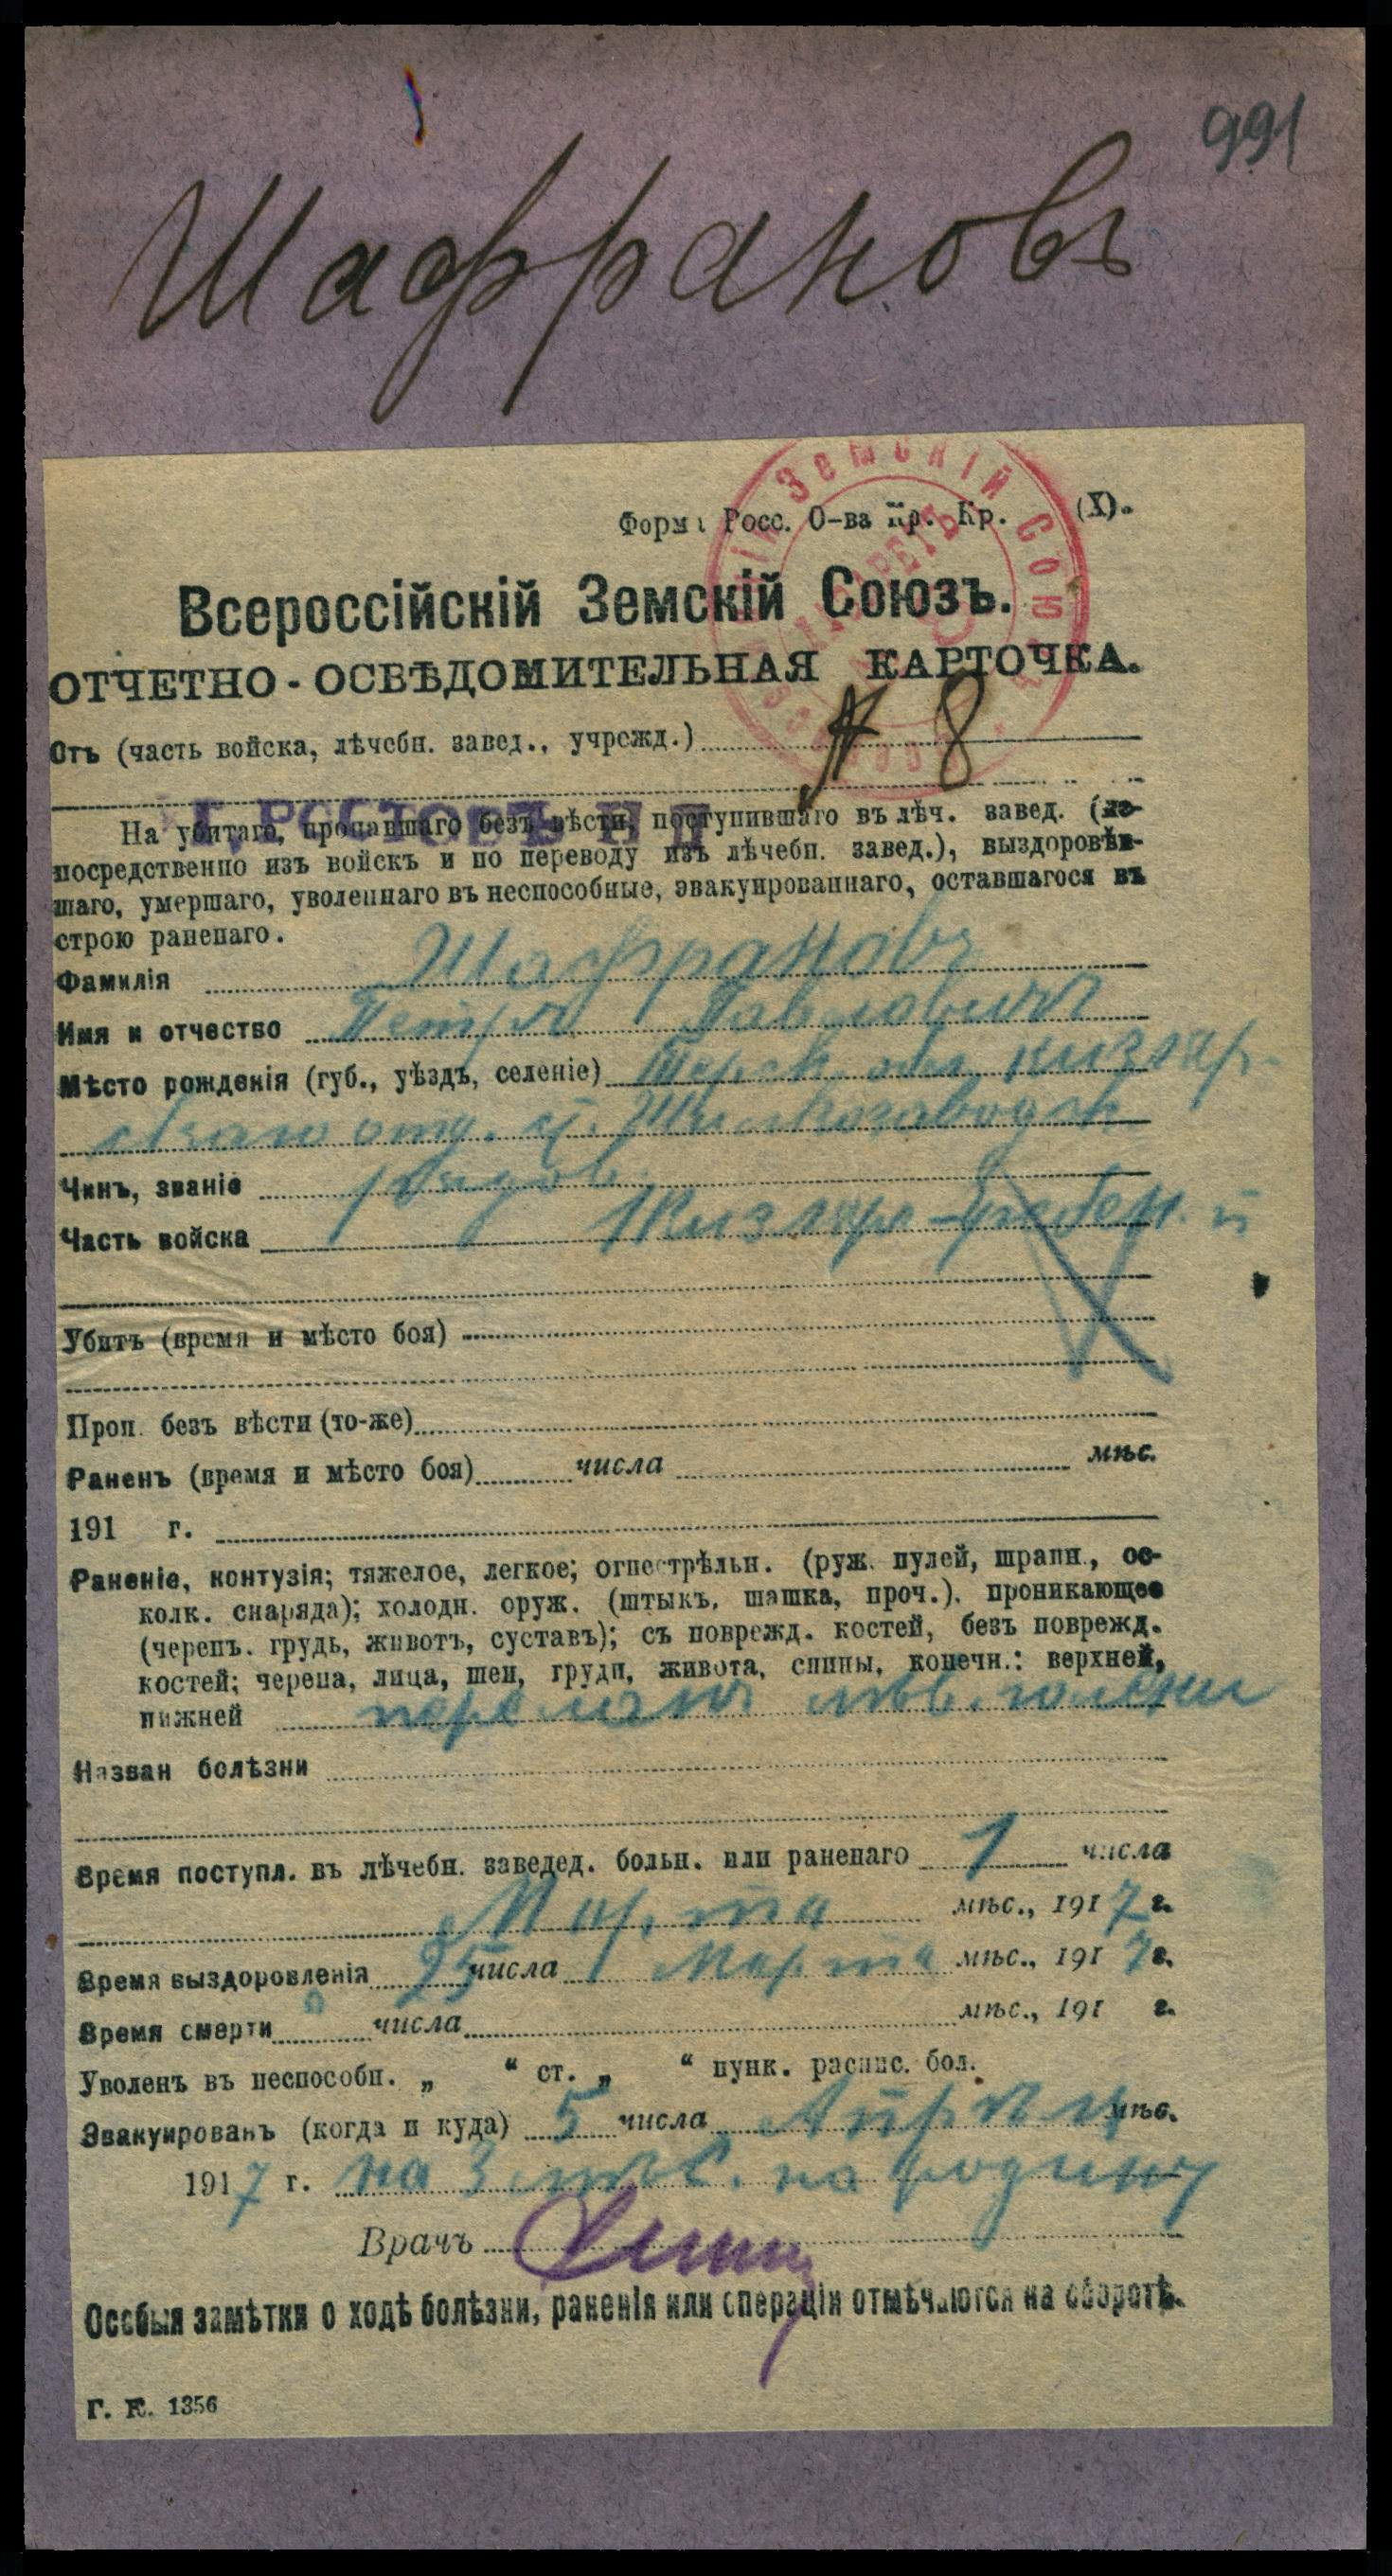 991
Шафрановъ
Форма Росс. О-ва Кр. Кр. (X).
Всероссійскій Земскій Союзъ.
ОТЧЕТНО-ОСВѢДОМИТЕЛЬНАЯ КАРТОЧКА.
Отъ (часть войска, лѣчебн. завед., учрежд.) № 8
Г. РОСТОВЪ Н Д
На убитаго, пропавшаго безъ вѣсти, поступившаго въ лѣч. завед. (не-
посредственно изъ войскъ и по переводу изъ лѣчебн. завед.), выздоровѣв-
шаго, умершаго, уволеннаго въ неспособные, эвакуированнаго, оставшагося въ
строю раненаго.
Фамилія Шафрановъ
Имя и отчество Петръ Павловичъ
Мѣсто рожденія (губ., уѣздъ, селеніе) Терск. обл. Кизляр-
скаго отд. ст.
Чинъ, званіе рядов.
Часть войска 1 Кизляро-Гребен. й
Убитъ (время и мѣсто боя)
Проп. безъ вѣсти (то-же)
Раненъ (время и мѣсто боя) числа мѣс.
191 г.
Раненіе, контузія; тяжелое, легкое; огнестрѣльн. (руж. пулей, шрапн., ос-
колк. снаряда); холодн. оруж. (штыкъ, шашка, проч.). проникающее
(черепъ. грудь, животъ, суставъ); съ поврежд. костей, безъ поврежд.
костей; черепа, лица, шеи, груди, живота, спины, конечн.: верхней,
нижней переломъ лѣв. голени
Назван болѣзни
Время поступл. въ лѣчебн. заведед. больн. или раненаго 1 числа
Марта мѣс., 1917 г.
Время выздоровленія 25 числа Марта мѣс., 1917 г.
Время смерти числа мѣс., 191 г.
Уволенъ въ неспособн. „ “ ст. „ “ пунк. распис. бол.
Эвакуированъ (когда и куда) 5 числа Апрѣля мѣс.
1917 г. на 3 мѣс. на родину
Врачъ
Особыя замѣтки о ходѣ болѣзни, раненія или операціи отмѣчаются на оборотѣ.
Г. К. 1356